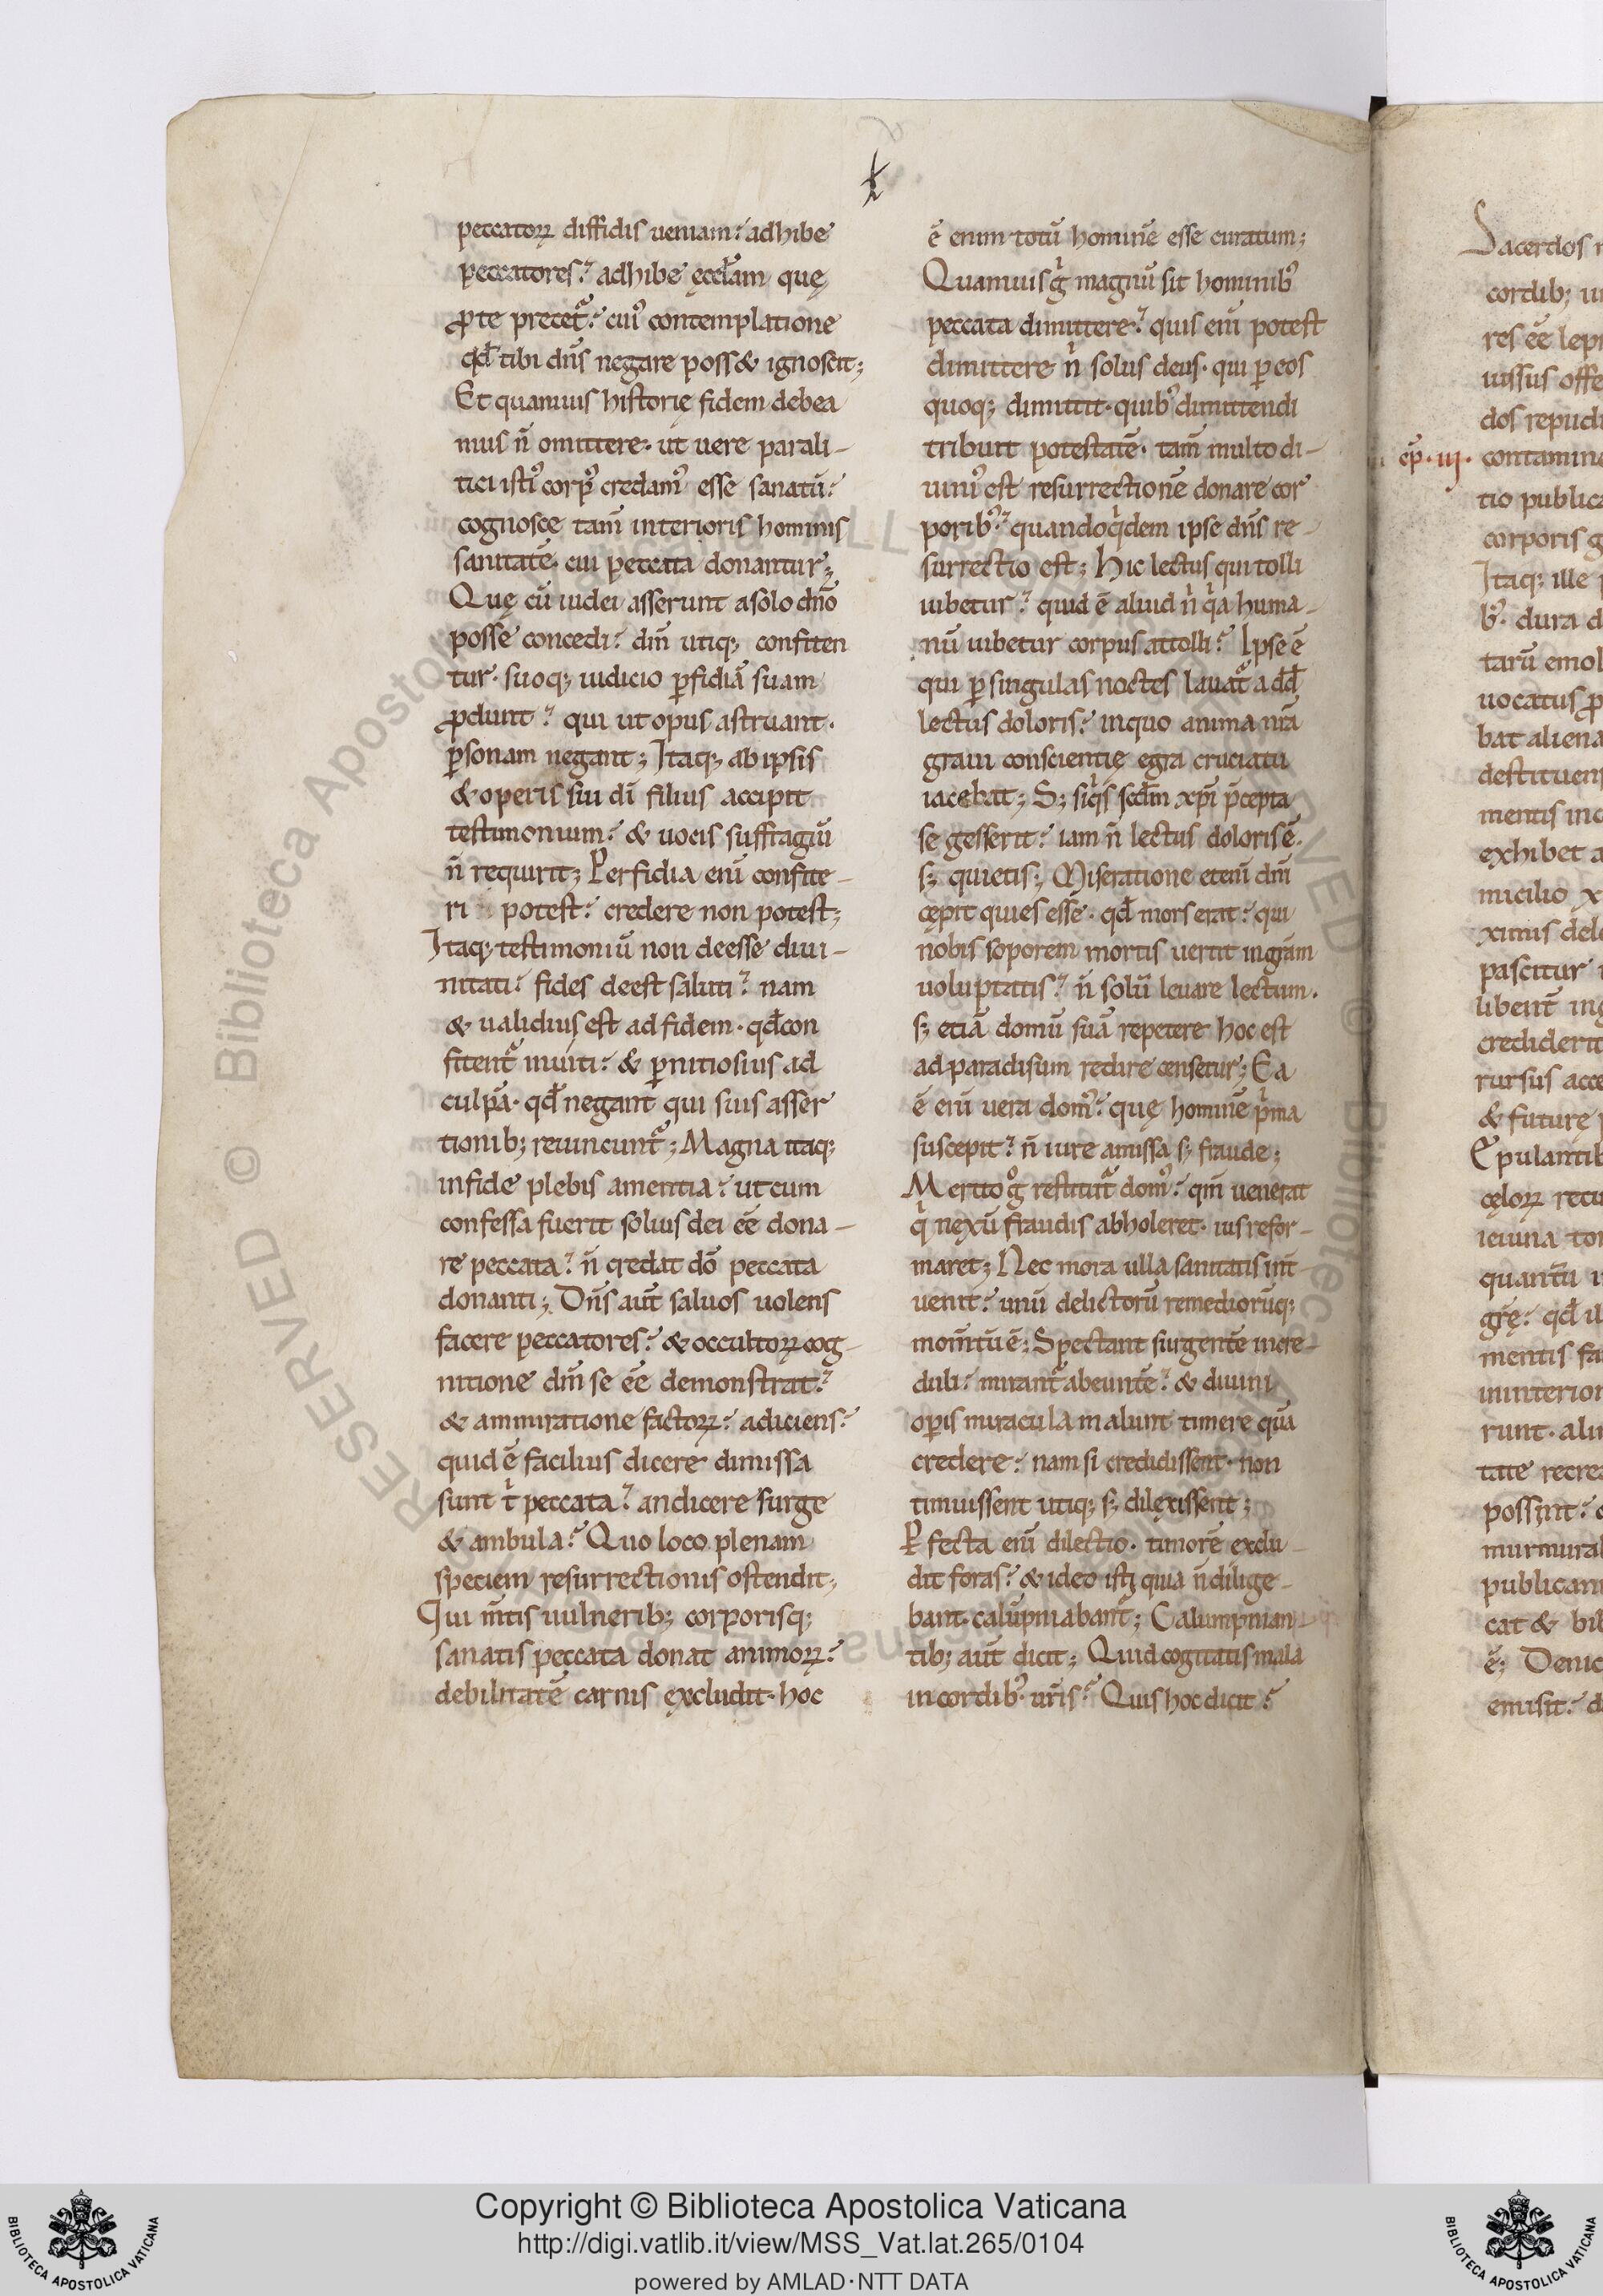 peccatoꝝ diffidis ueniam? adhibe
peccatores? adhibe ęccłam quę
ꝓ te precet᷑? cuiꝰ contemplatione
qđ tibi dñs negare poss& ignoscit;
Et quamuis historię fidem debea
mus ñ omittere· ut uere parali-
tici istiꝰ corpꝰ credamꝰ esse sanatū?
cognosce tam̄ interioris hominis
sanitatē· cui peccata donantur;
Quę cū iudei asserunt a solo dn̄o
posse concedi? dm̄ utiq; confiten
tur· suoq; iudicio ꝑfidiā suam
ꝓdunt? qui ut opus astruant·
ꝑsonam negant; Itaq; ab ipsis
& operis sui dī filius accipit
testimonium? & uocis suffragiū
ñ requirit; Perfidia enī confite-
ri potest? credere non potest;
Itaq; testimoniū non deesse diui-
nitati? fides deest saluti? nam
& ualidius est ad fidem· qđ con
fitent᷑ inuiti? & ꝑnitiosius ad
culpā· qđ negant qui suis asser
tionib; reuincunt᷑; Magna itaq;
infide plebis amentia? ut cum
confessa fuerit solius dei eē dona-
re peccata? ñ credat dō peccata
donanti; Dñs aut̄ saluos uolens
facere peccatores? & occultoꝝ cog-
nitione dm̄ se eē demonstrat?
& ammiratione factoꝝ? adiciens?
quid ē facilius dicere dimissa
sunt tⁱ peccata? an dicere surge
& ambula? Quo loco plenam
speciem resurrectionis ostendit;
Qui m̄tis uulnerib; corporisq;
sanatis peccata donat animoꝝ?
debilitatē carnis excludit· hoc
ē enim totū hominē esse curatum;
Quamuis gⁱ magnū sit hominibꝰ
peccata dimittere? quis enī potest
dimittere nⁱ solus deus· qui ꝑ eos
quoq; dimittit· quibꝰ dimittendi
tribuit potestatē· tam̄ multo di-
uiniꝰ est resurrectionē donare cor
poribꝰ? quandoqⁱdem ipse dñs re-
surrectio est; Hic lectus qui tolli
iubetur? quid ē aliud nⁱ qⁱa huma-
nū iubetur corpus attolli? Ipse ē
qui ꝑ singulas noctes lauat᷑ a dđ
lectus doloris? in quo anima nr̄a
graui conscientię egra cruciatu
iacebat; S; siqⁱs scđm xp̄i p̄cepta
se gesserit? iam ñ lectus doloris ē·
s; quietis; Miseratione etenī dm̄
cępit quies esse· qđ mors erat? qui
nobis soporem mortis uertit in gr̄am
uoluptatis? ñ solū leuare lectum·
s; etiā domū suā repetere hoc est
ad paradisum redire censetur; Ea
ē enī uera domꝰ? quę hominē pⁱma
suscepit? ñ iure amissa s; fraude;
Merito gͦ restituit᷑ domꝰ? qm̄ uenerat
qⁱ nexū fraudis abholeret· ius refor-
maret; Nec mora ulla sanitatis int̄-
uenit? unū delictorū remediorūq;
mom̄tū ē; Spectant surgentē incre-
duli? mirant᷑ abeuntē? & diuini
oꝑis miracula malunt timere quā
credere? nam si credidissent· non
timuissent utiq; s; dilexissent;
Pfecta enī dilectio· timorē exclu-
dit foras? & ideo istj quia ñ dilige-
bant· calūpniabant᷑; Calumpnian-
tib; aut̄ dicit; Quid cogitatis mala
in cordibꝰ· ur̄is? Quis hoc dicit?
Sacerdos
cordib;
res eē
uissus
dos
cp̄· iij·
tio
corporis
Itaq; ille
bꝰ· dura
tarū
uocatus
bat aliena
mentis
exhibet
micilio
ximis
pascitur
rursus
& futurę
cęloꝝ
ieiuna
gr̄ę? qđ
mentis
runt·
tate
cat &
ē;
emisit?
Copyright © Biblioteca Apostolica Vaticana
http://digi.vatlib.it/view/MSS_Vat.lat.265/0104
powered by AMLAD·NTT DATA
BIBLIOTECA APOSTOLICA VATICANA
BIBLIOTECA APOSTOLICA VATICANA